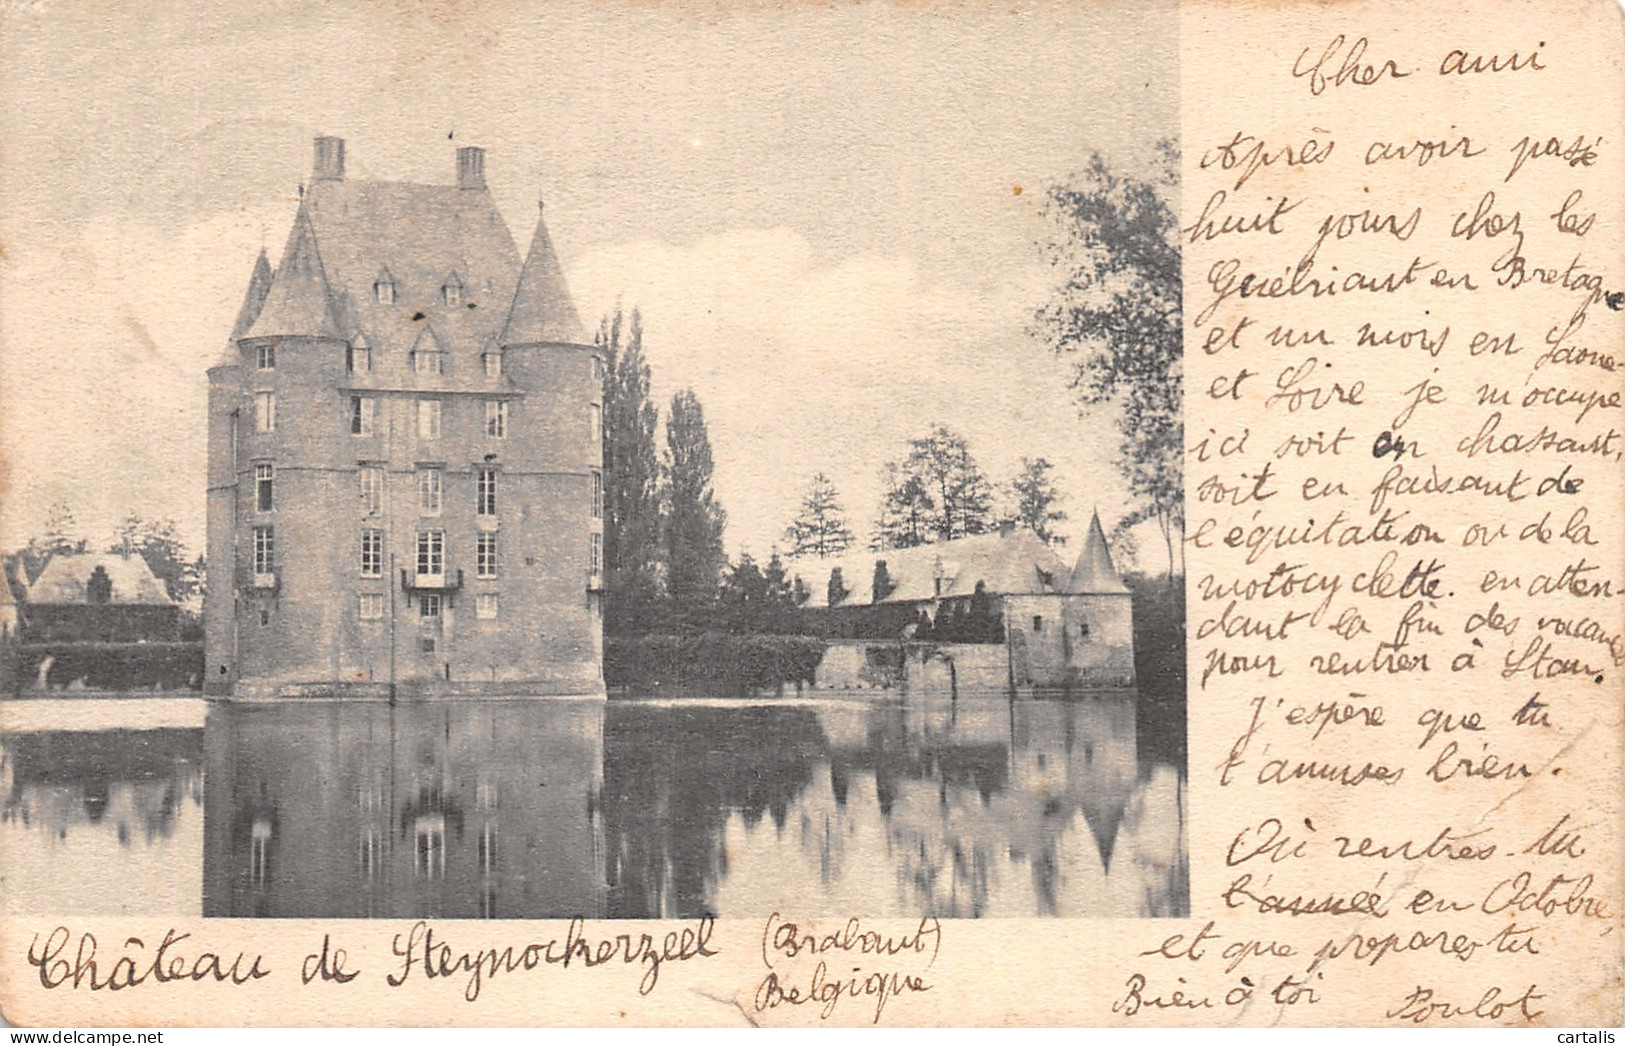 Cher ami
Après avoir passé
huit jours chez les
Guébriant en Bretagne
et un mois en Saone-
et Loire je m'occupe
ici soit en chassant,
soit en faisant de
l'équitation ou de la
motocyclette. en atten-
dant la fin des vacances
pour rentrer à Stan.
J'espère que tu
t'amuses bien.
Où rentres-tu
l'année en Octobre,
et que propares tu
Bien à toi Poulot
Château de Steynockerzeel (Brabant)
Belgique
delcampe.net
cartalis